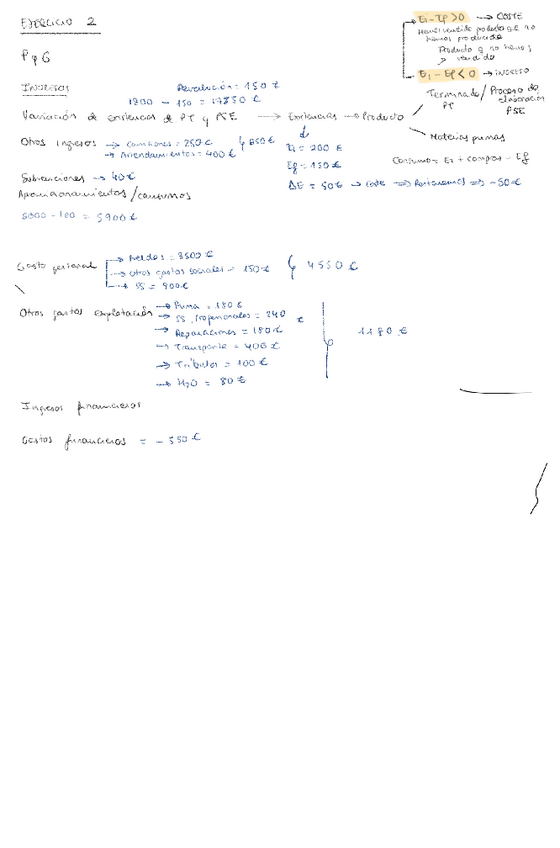 EJERCICIO 2
Ei - Ef > 0 → COSTE
Hemos vendido producto que no
hemos producido
Producto q no hemos
vendido
Ei - Ef < 0 → INGRESO
P y G
INGRESOS
Devolución = 150 €
- 150 = 17850 €
Variación de existencias de PT y PSE → Existencias → Producto
Terminado / Proceso de
PT elaboración
PSE
Materias primas
Otros ingresos → Comisiones = 250 €
→ Arrendamientos = 400 €
650 €
Ei = 200 €
Ef = 150 €
ΔE = 50 € → Coste → Restaremos → -50 €
Consumos Ei + compras - Ef
Subvenciones → 40 €
Aprovisionamientos / consumos
- 100 = 5900 €
Gasto personal
→ Sueldos = 3500 €
→ Otros gastos sociales = 150 €
→ SS = 900 €
4550 €
Otros gastos explotación → Prima = 180 €
→ SS. Profesionales = 240 €
→ Reparaciones = 180 €
→ Transporte = 400 €
→ Tributos = 100 €
→ H2O = 80 €
1180 €
Ingresos financieros
Gastos financieros = - 350 €